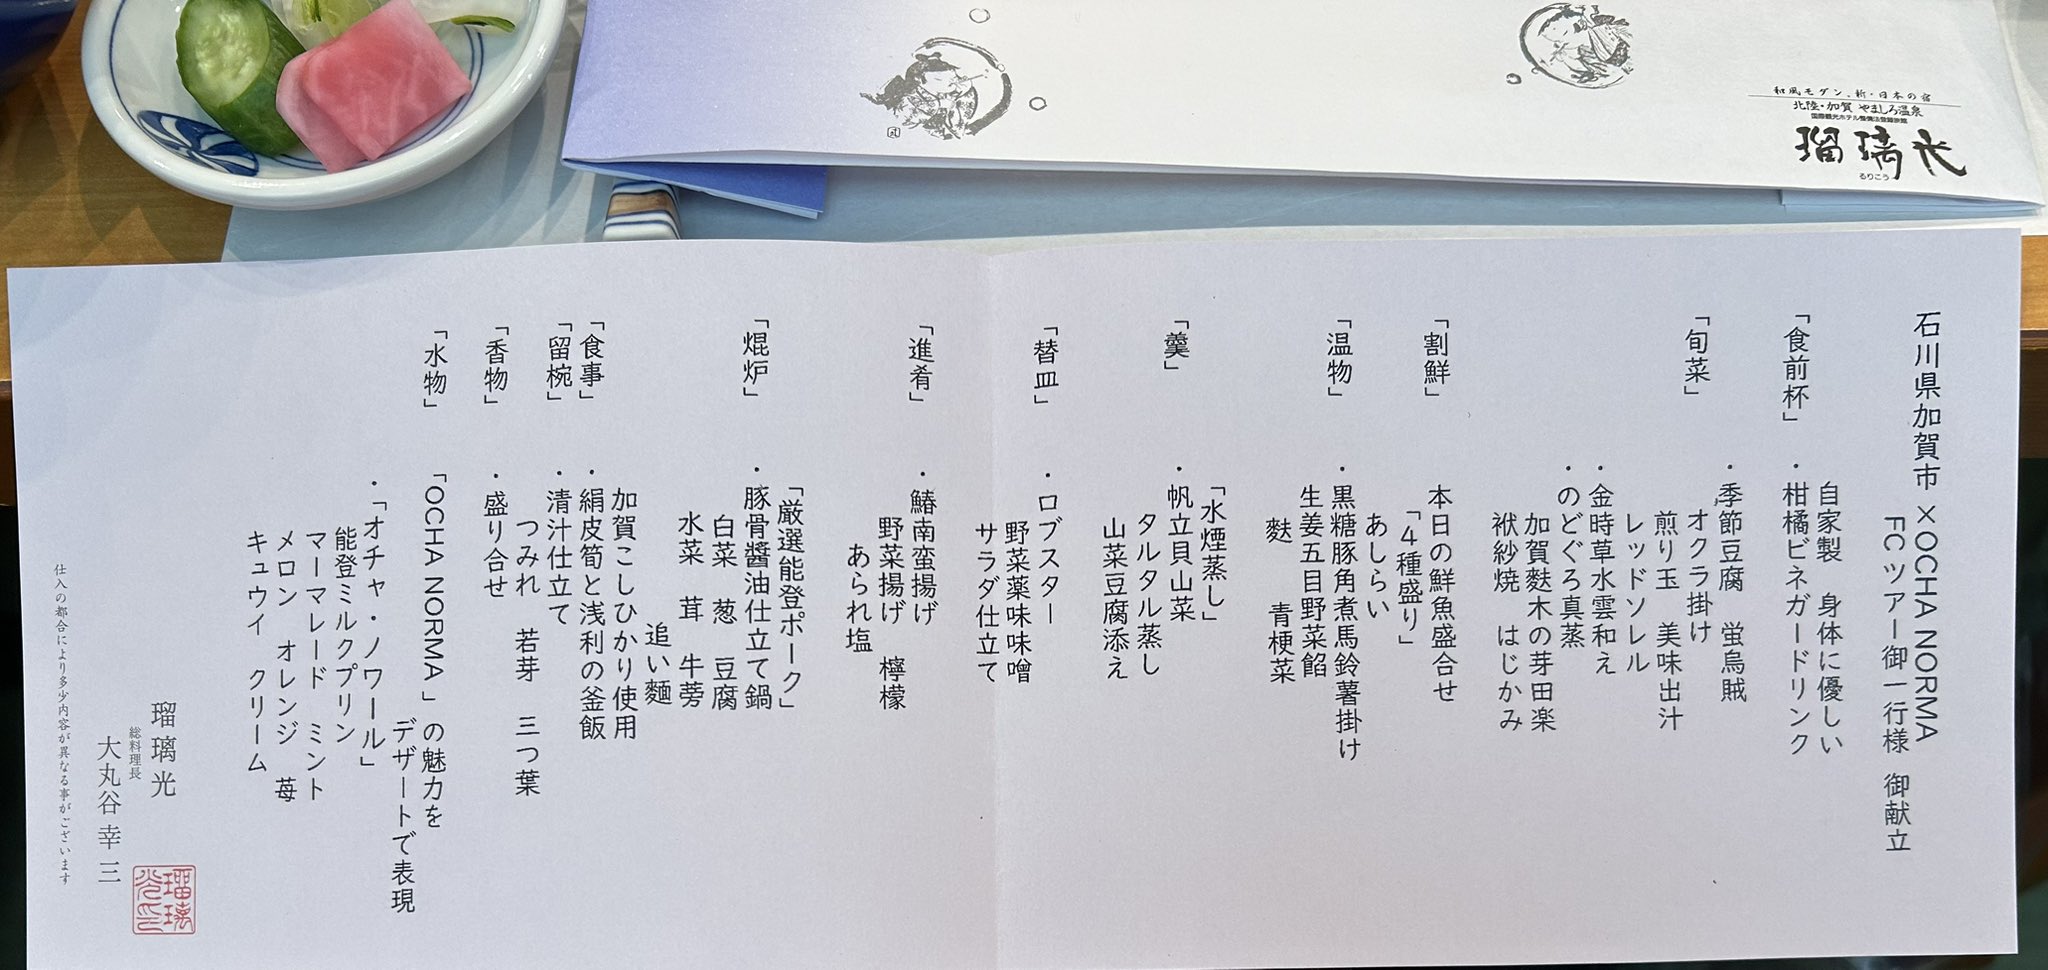 和風モダン、新・日本の宿
北陸・加賀 やましろ温泉
国際観光ホテル整備法登録旅館
瑠璃光
るりこう
石川県加賀市×OCHA NORMA
FCツアー御一行様 御献立
「食前杯」
自家製 身体に優しい
・柑橘ビネガードリンク
「旬菜」
・季節豆腐 蛍烏賊
オクラ掛け
煎り玉 美味出汁
レッドソレル
・金時草水雲和え
・のどぐろ真蒸
加賀麩木の芽田楽
袱紗焼 はじかみ
「割鮮」
本日の鮮魚盛合せ
「4種盛り」
あしらい
「温物」
・黒糖豚角煮馬鈴薯掛け
生姜五目野菜餡
麩 青梗菜
「羹」
「水煙蒸し」
・帆立貝山菜
タルタル蒸し
山菜豆腐添え
「替皿」
・ロブスター
野菜薬味味噌
サラダ仕立て
「進肴」
・鰆南蛮揚げ
野菜揚げ 檸檬
あられ塩
「焜炉」
「厳選能登ポーク」
・豚骨醬油仕立て鍋
白菜 葱 豆腐
水菜 茸 牛蒡
追い麺
「食事」
加賀こしひかり使用
・絹皮筍と浅利の釜飯
「留椀」
・清汁仕立て
つみれ 若芽 三つ葉
「香物」
・盛り合せ
「水物」
「OCHA NORMA」の魅力を
デザートで表現
・「オチャ・ノワール」
能登ミルクプリン
マーマレード ミント
メロン オレンジ 苺
キュウイ クリーム
瑠璃光
総料理長
大丸谷 幸三
仕入の都合により多少内容が異なる事がございます